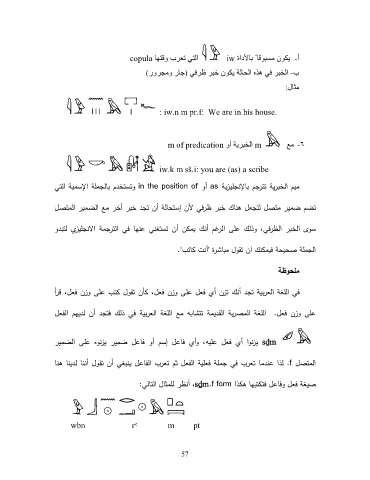 أ- يكون مسبوقاً بالأداة iw التي تعرب وقتها copula
ب- الخبر في هذه الحالة يكون خبر ظرفي (جار ومجرور)
مثال:
: iw.n m pr.f: We are in his house.
٦- مع m الخبرية أو m of predication
iw.k m sš.i: you are (as) a scribe
ميم الخبرية تترجم بالإنجليزية as أو in the position of وتستخدم بالجملة الإسمية التي
تضم ضمير متصل لتجعل هناك خبر ظرفي لأن إستحالة أن تجد خبر أخر مع الضمير المتصل
سوى الخبر الظرفي، وذلك على الرغم أنك يمكن أن تستغني عنها في الترجمة الانجليزي لتبدو
الجملة صحيحة فيمكنك ان تقول مباشرة "أنت كاتب".
ملحوظة
في اللغة العربية تجد أنك تزن أي فعل على وزن فعل، كأن تقول كتب على وزن فعل، قرأ
على وزن فعل. اللغة المصرية القديمة تتشابه مع اللغة العربية في ذلك فتجد أن لديهم الفعل
sḏm يزنوا أي فعل عليه، وأي فاعل إسم أو فاعل ضمير يزنوه على الضمير
المتصل f. لذا عندما تعرب في جملة فعلية الفعل ثم تعرب الفاعل ينبغي أن تقول أننا لدينا هنا
صيغة فعل وفاعل فتكتبها هكذا sḏm.f form، أنظر للمثال التالي:
wbn rꜥ m pt
57